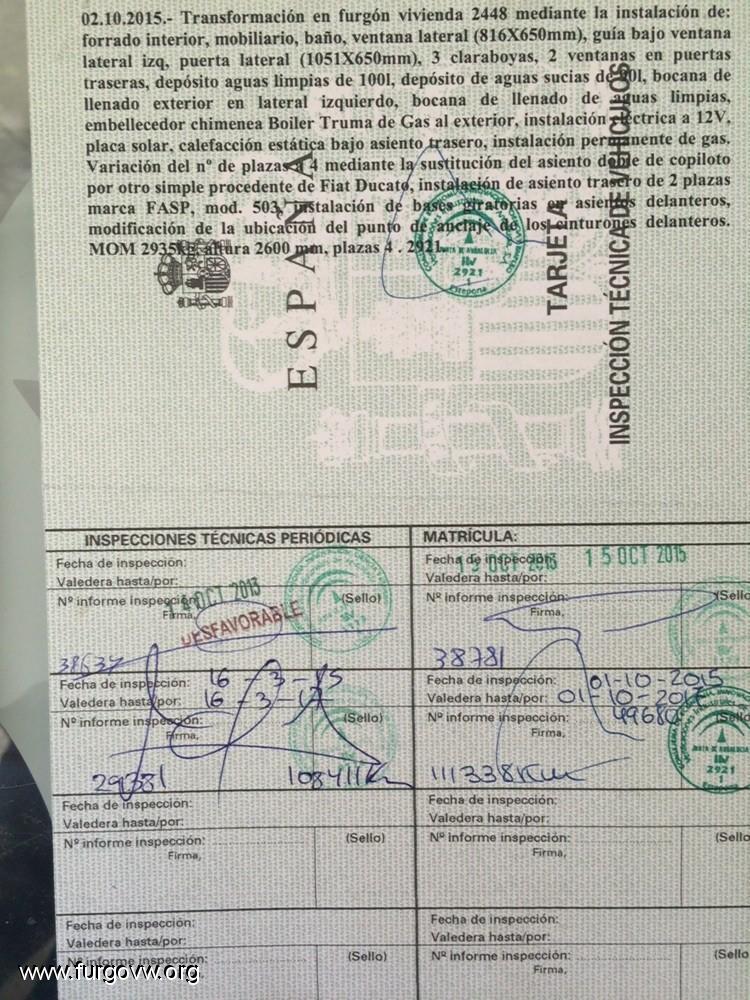 02.10.2015.- Transformación en furgón vivienda 2448 mediante la instalación de:
forrado interior, mobiliario, baño, ventana lateral (816X650mm), guía bajo ventana
lateral izq, puerta lateral (1051X650mm), 3 claraboyas, 2 ventanas en puertas
traseras, depósito aguas limpias de 100l, depósito de aguas sucias de
llenado exterior en lateral izquierdo, bocana de llenado de aguas limpias,
embellecedor chimenea Boiler Truma de Gas al exterior, instalación eléctrica a 12V,
placa solar, calefacción estática bajo asiento trasero, instalación permanente de gas.
Variación del nº de plazas a 4 mediante la sustitución del asiento doble de copiloto
por otro simple procedente de Fiat Ducato, instalación de asiento trasero de 2 plazas
marca FASP, mod. 503, instalación de bases giratorias en asientos delanteros,
modificación de la ubicación del punto de anclaje de los cinturones delanteros.
MOM 2935kg, altura 2600 mm, plazas 4 . 2921.
ESPAÑA
TARJETA
INSPECCIÓN TÉCNICA DE VEHÍCULOS
JUNTA DE ANDALUCIA
2921
1
Estepona
INSPECCIONES TÉCNICAS PERIÓDICAS
MATRÍCULA:
Fecha de inspección:
Valedera hasta/por:
Nº informe inspección:
Firma,
(Sello)
OCT 2013
DESFAVORABLE
38637
Fecha de inspección: 15 OCT 2015
Valedera hasta/por:
Nº informe inspección:
Firma,
(Sello
38781
Fecha de inspección: 16-3-15
Valedera hasta/por: 16-3-17
Nº informe inspección:
Firma,
(Sello)
29331 108411Km
Fecha de inspección: 01-10-2015
Valedera hasta/por: 01-10-2017
Nº informe inspección: 49680
Firma,
111338Km
JUNTA DE ANDALUCIA
2921
1
Fecha de inspección:
Valedera hasta/por:
Nº informe inspección:
Firma,
(Sello)
Fecha de inspección:
Valedera hasta/por:
Nº informe inspección:
Firma,
(Sello
Fecha de inspección:
Valedera hasta/por:
Nº informe inspección:
Firma,
(Sello)
Fecha de inspección:
Valedera hasta/por:
Nº informe inspección:
Firma,
(Sello
www.furgovw.org